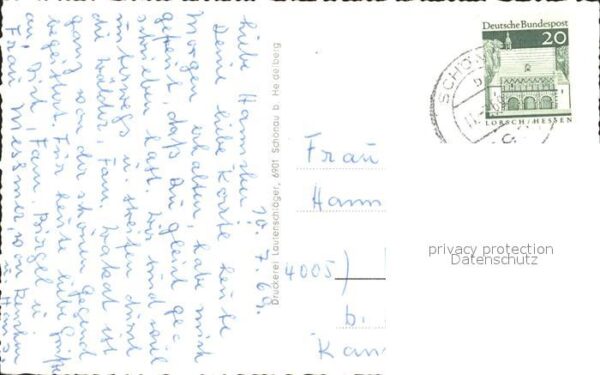 10.7.69.
Liebe Hannchen!
Deine liebe Karte heute
Morgen erhalten, habe mich
gefreut, daß Du gleich ge-
schrieben hast. Wir sind viel
unterwegs u. streifen durch
die Wälder, Fam. ist
ganz von der schönen Gegend
begeistert. Für heute liebe Grüße
an Dich, Fam. u.
Frau von
u.
Druckerei Lautenschläger, 6901 Schönau b. Heidelberg
Deutsche Bundespost
20
LORSCH/HESSEN
SCHÖN
b
Frau
Hann
4005)
b.
Kan
privacy protection
Datenschutz